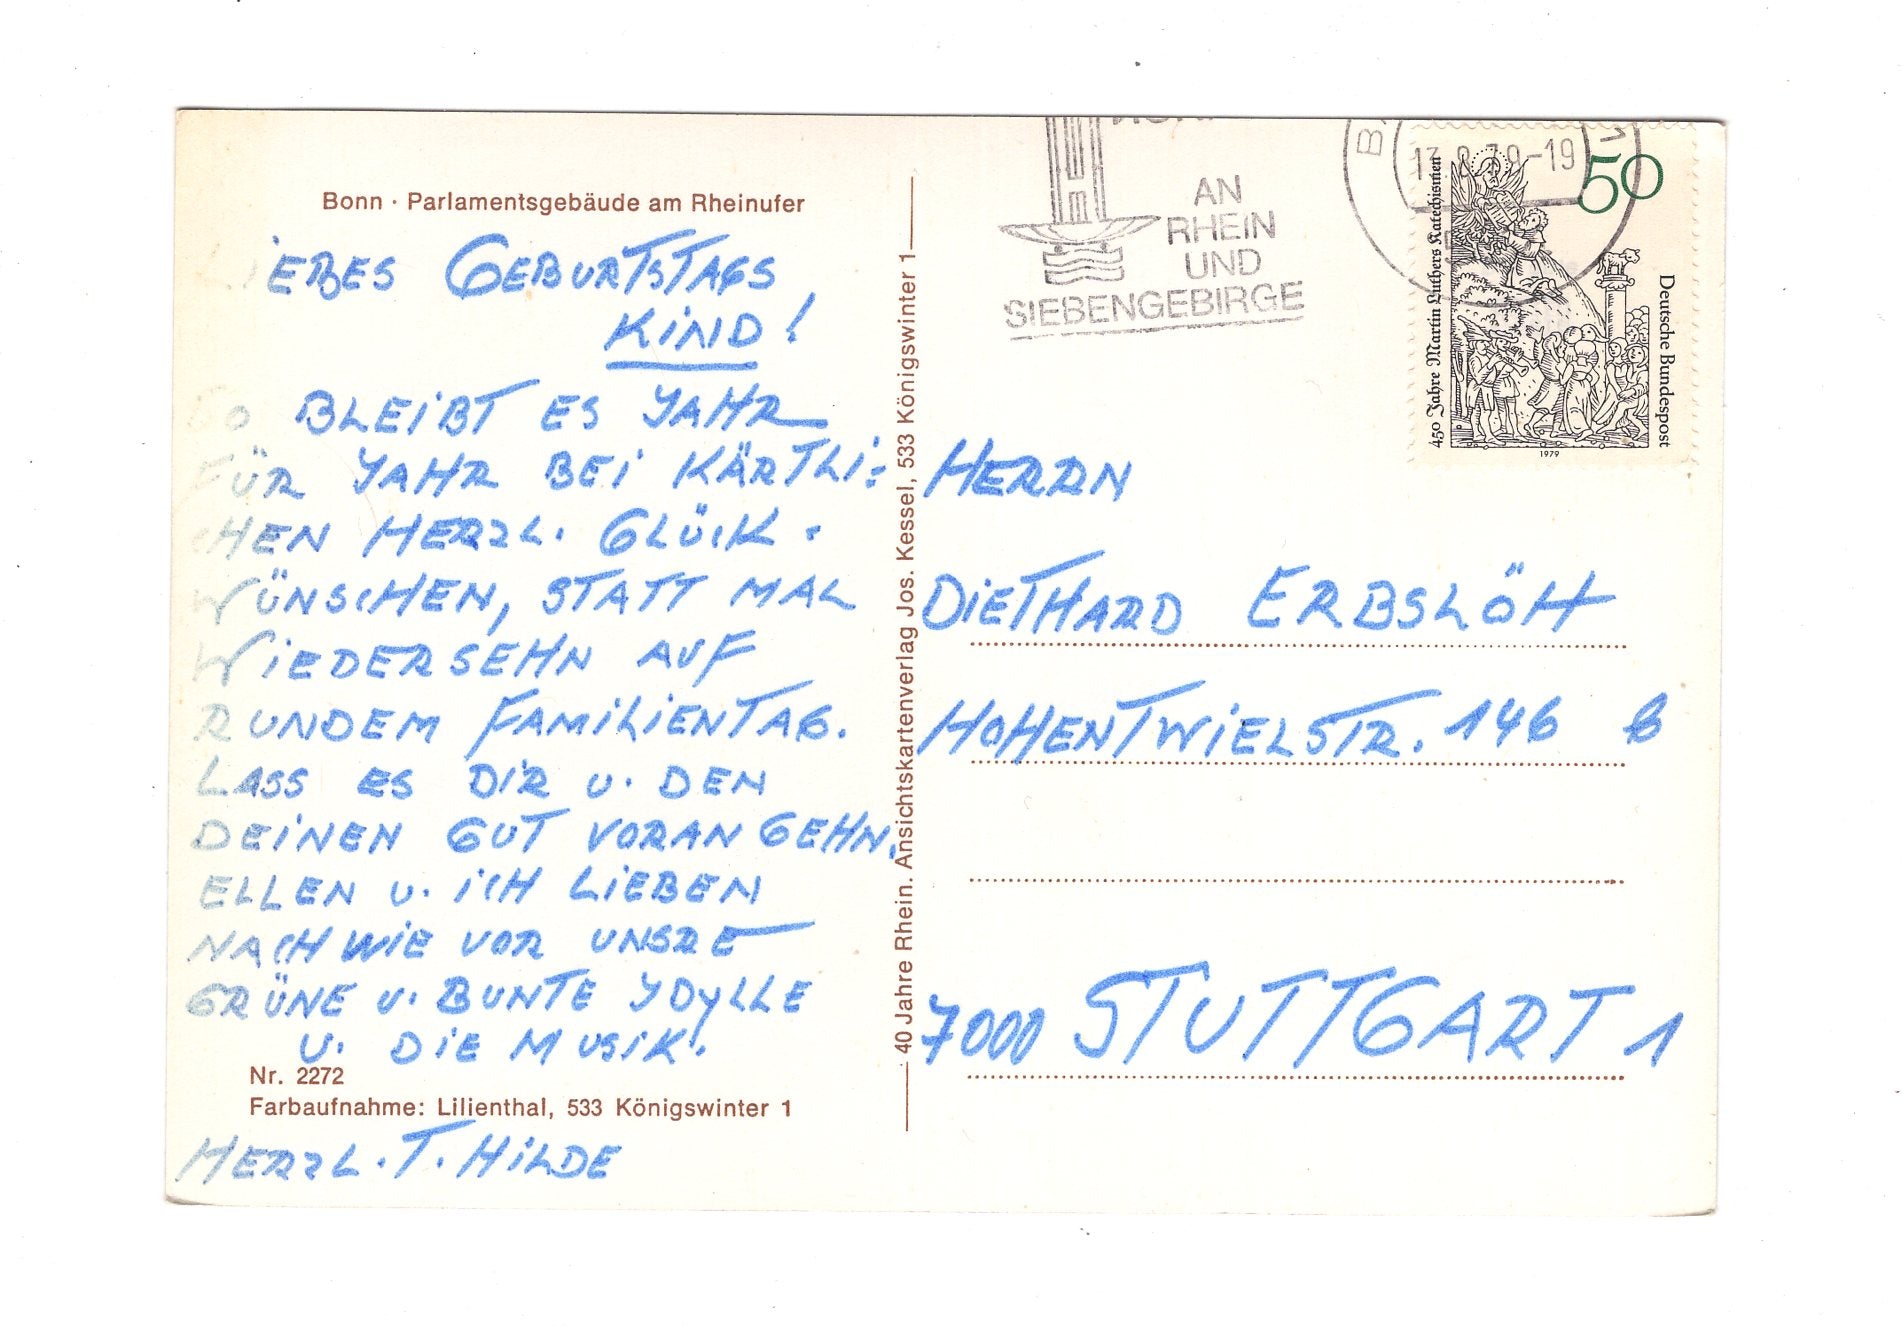 Bonn · Parlamentsgebäude am Rheinufer
IEBES GEBURTSTAGS
KIND!
SO BLEIBT ES JAHR
FÜR JAHR BEI KÄRTLI-
CHEN HERZL. GLÜCK-
WÜNSCHEN, STATT MAL
WIEDERSEHN AUF
RUNDEM FAMILIENTAG.
LASS ES DIR U. DEN
DEINEN GUT VORAN GEHN.
ELLEN U. ICH LIEBEN
NACH WIE VOR UNSRE
GRÜNE U. BUNTE IDYLLE
U. DIE MUSIK.
Nr. 2272
Farbaufnahme: Lilienthal, 533 Königswinter 1
HERZL. T. HILDE
40 Jahre Rhein. Ansichtskartenverlag Jos. Kessel, 533 Königswinter 1
AN
RHEIN
UND
SIEBENGEBIRGE
-19
50
450 Jahre Martin Luthers Katechismen
Deutsche Bundespost
1979
HERRN
DIETHARD ERBSLÖH
HOHENTWIELSTR. 146 b
7000 STUTTGART 1